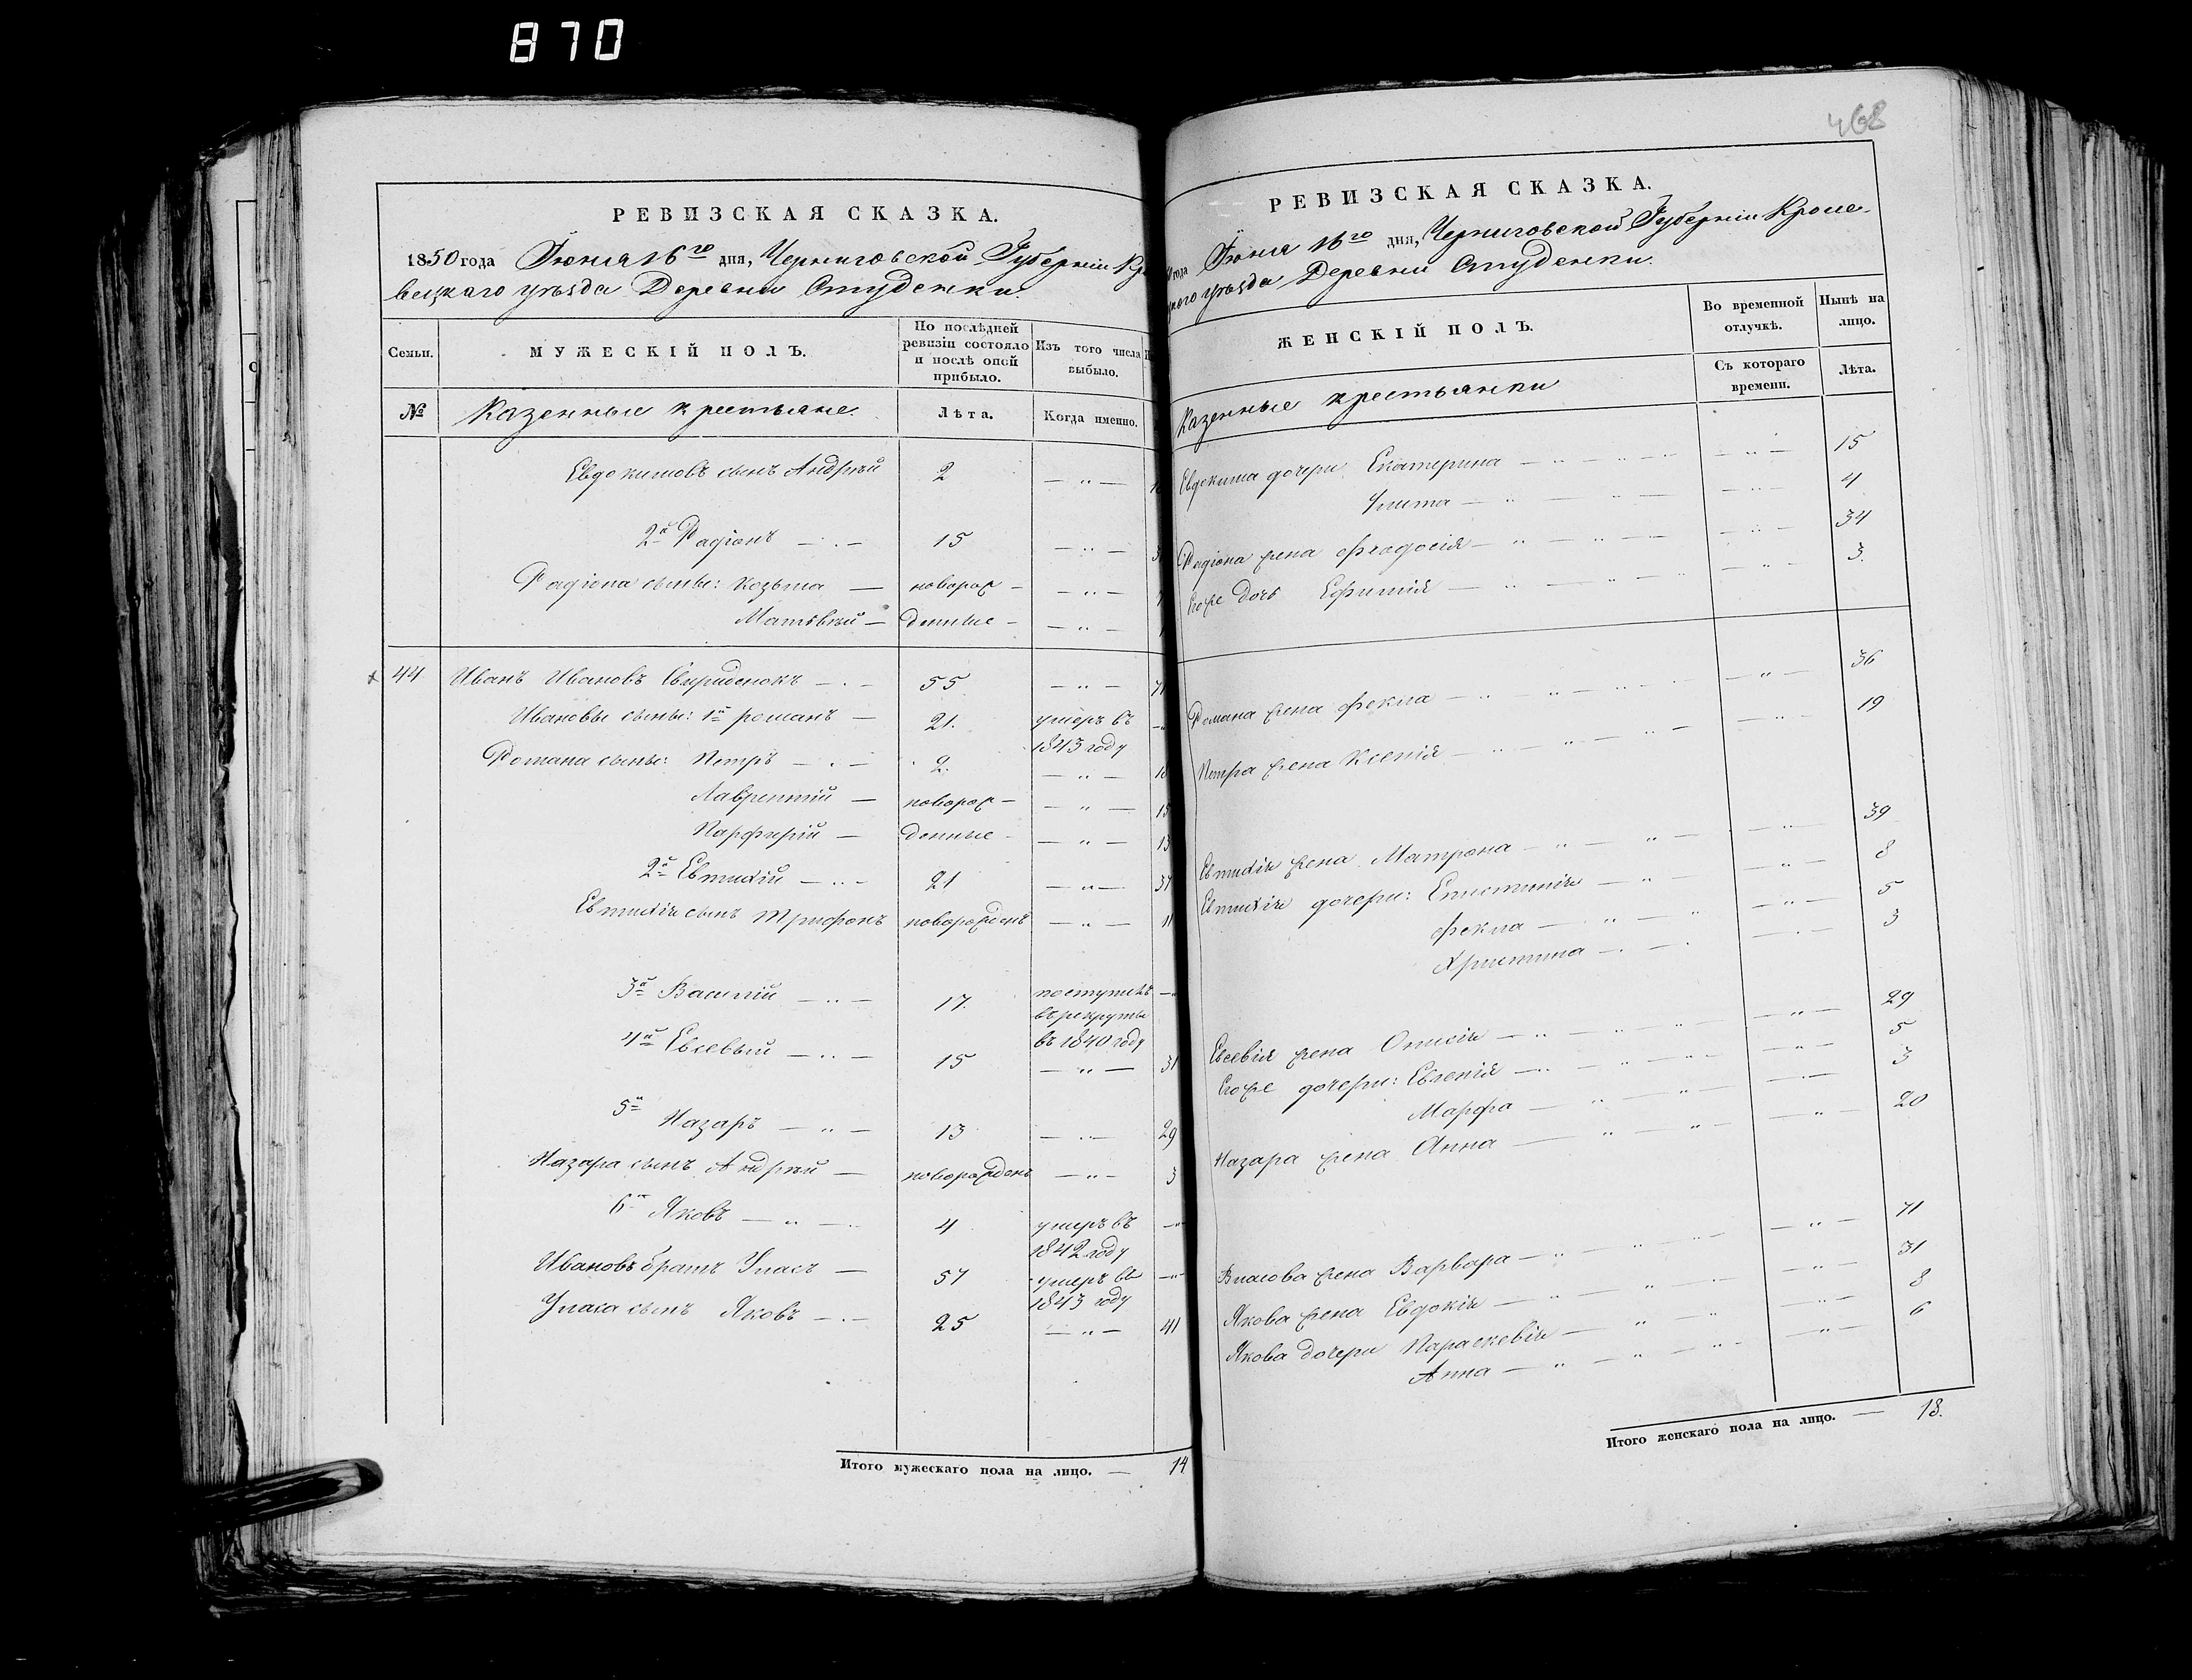 870
РЕВИЗСКАЯ СКАЗКА.
1850 года Іюня 16го дня, Черниговской Губерніи Кро
вецкаго уѣзда Деревни Студенки.
Семьи.
МУЖЕСКІЙ ПОЛЪ.
По послѣдней ревизіи состояло и послѣ оной прибыло.
Изъ того числа выбыло.
№
Казенные крестьяне.
Лѣта.
Когда именно.
Евдокимовъ сынъ Андрѣй 2 — „ —
2й Радіонъ — „ — 15 — „ —
Радіона сыны: Козьма — новорож — — „ —
Матвѣй — денные — — „ —
44 Иванъ Ивановъ Свириденокъ — „ — 55 — „ — 71
Ивановы сыны: 1й романъ — 21. умеръ въ — „
1843 году
Романа сыны: Петръ — „ — 2. — „ — 18
Лаврентій — новорож — — „ — 15
Парфирій — денные — — „ — 13
2й Евтихій — „ — 21 — „ — 37
Евтихія сынъ Трифонъ новорожденъ — „ — 11
3й Василій — „ — 17. поступилъ — „
въ рекруты
въ 1840 году
4й Евсевый — „ — 15 — „ — 31
5й Назаръ — „ — 13 — „ — 29
Назара сынъ Андрѣй — новорожденъ — „ — 3
6й Яковъ — „ — 4 умеръ въ — „
1842 году
Ивановъ братъ Уласъ — 57 умеръ въ — „
1843 году
Уласа сынъ Яковъ — „ — 25 — „ — 41
Итого мужескаго пола на лицо. — 14
468
РЕВИЗСКАЯ СКАЗКА.
года Іюня 16го дня, Черниговской Губерніи Кроле-
цкаго уѣзда Деревни Студенки.
ЖЕНСКІЙ ПОЛЪ.
Во временной отлучкѣ.
Нынѣ на лицо.
Съ котораго времени.
Лѣта.
Казенные крестьянки
Евдокима дочери Екатерина — „ — „ — — „ — 15
Улита — „ — „ — — „ — 4
Радіона жена Феодосія — „ — „ — — „ — 34
Егоже дочь Ефимія — „ — „ — — „ — 3.
Романа жена Фекла — „ — „ — — „ — 36
Петра жена Ксенія — „ — „ — — „ — 19
Евтихія жена Матрона — „ — „ — — „ — 39
Евтихія дочери: Епистинія — „ — — „ — 8
Фекла — „ — „ — „ — 5
Христина — „ — „ — „ — 3
Евсевія жена Онисія — „ — „ — — „ — 29
Егоже дочери: Евгенія — „ — „ — — „ — 5
Марфа — „ — „ — — „ — 3
Назара жена Анна — „ — „ — — „ — 20
Власова жена Варвара — „ — „ — — „ — 71
Якова жена Евдокія — „ — „ — — „ — 31
Якова дочери Параскевія — „ — „ — „ — 8
Анна — „ — „ — „ — — „ — 6
Итого женскаго пола на лицо. — 18.